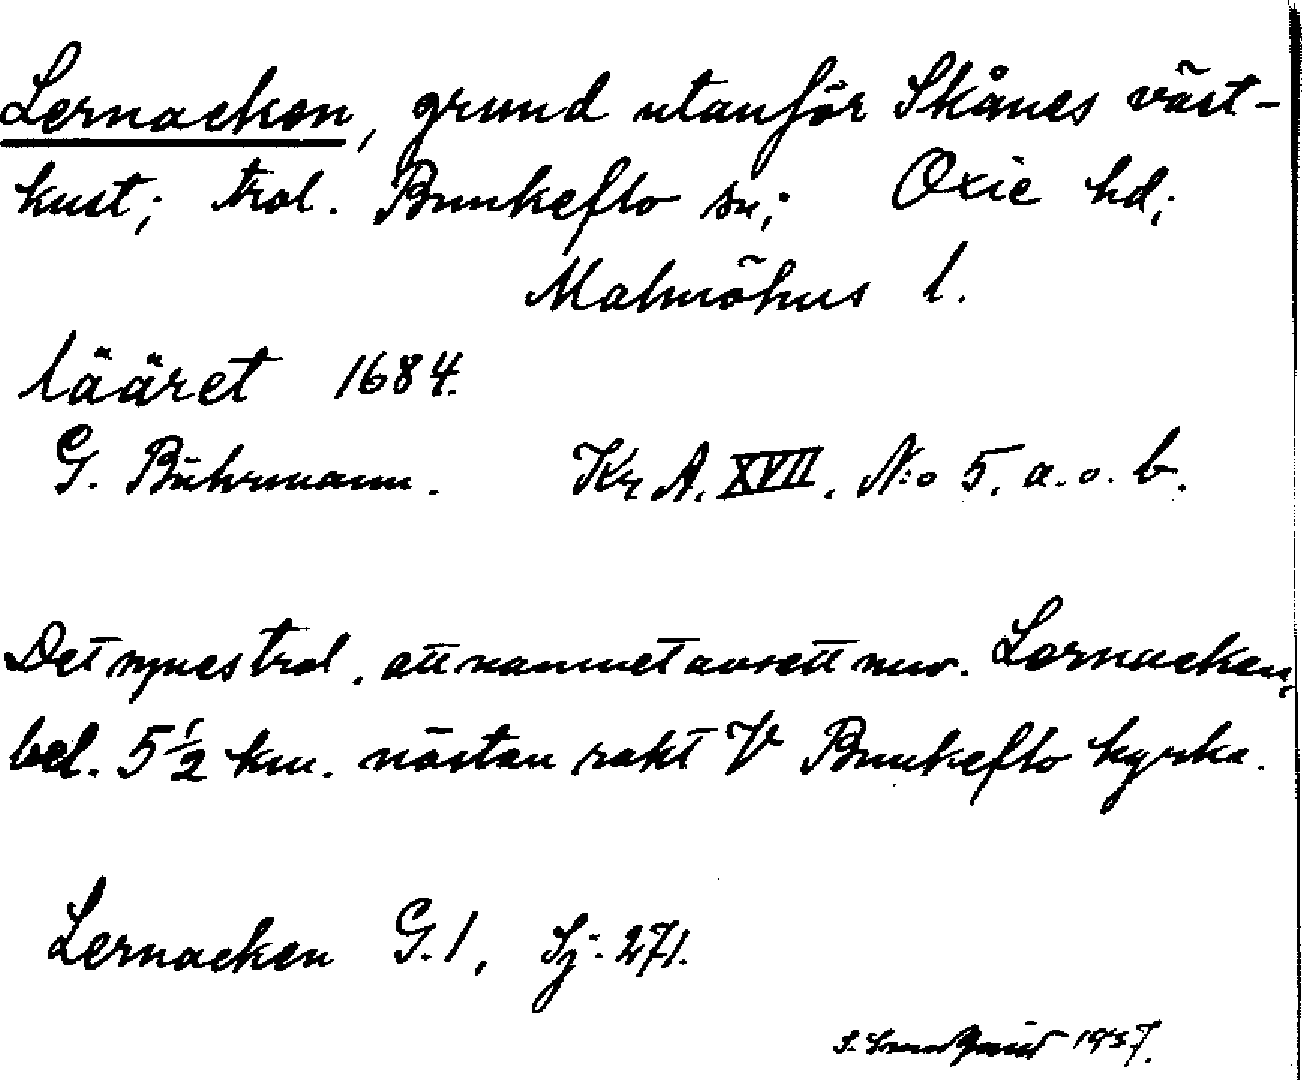 Lernacken, grund utanför Skånes väst-
kust; trol. Bunkeflo sn; Oxie hd;
Malmöhus l.
lääret 1684.
G. Buhrmann. Kr A. XVII. N:o 5. a. o. b.
Det synes trol. att namnet avsett nuv. Lernacken,
bel. 5 1/2 km. nästan rakt V Bunkeflo kyrka.
Lernacken G. 1, Sj: 271.
1937.